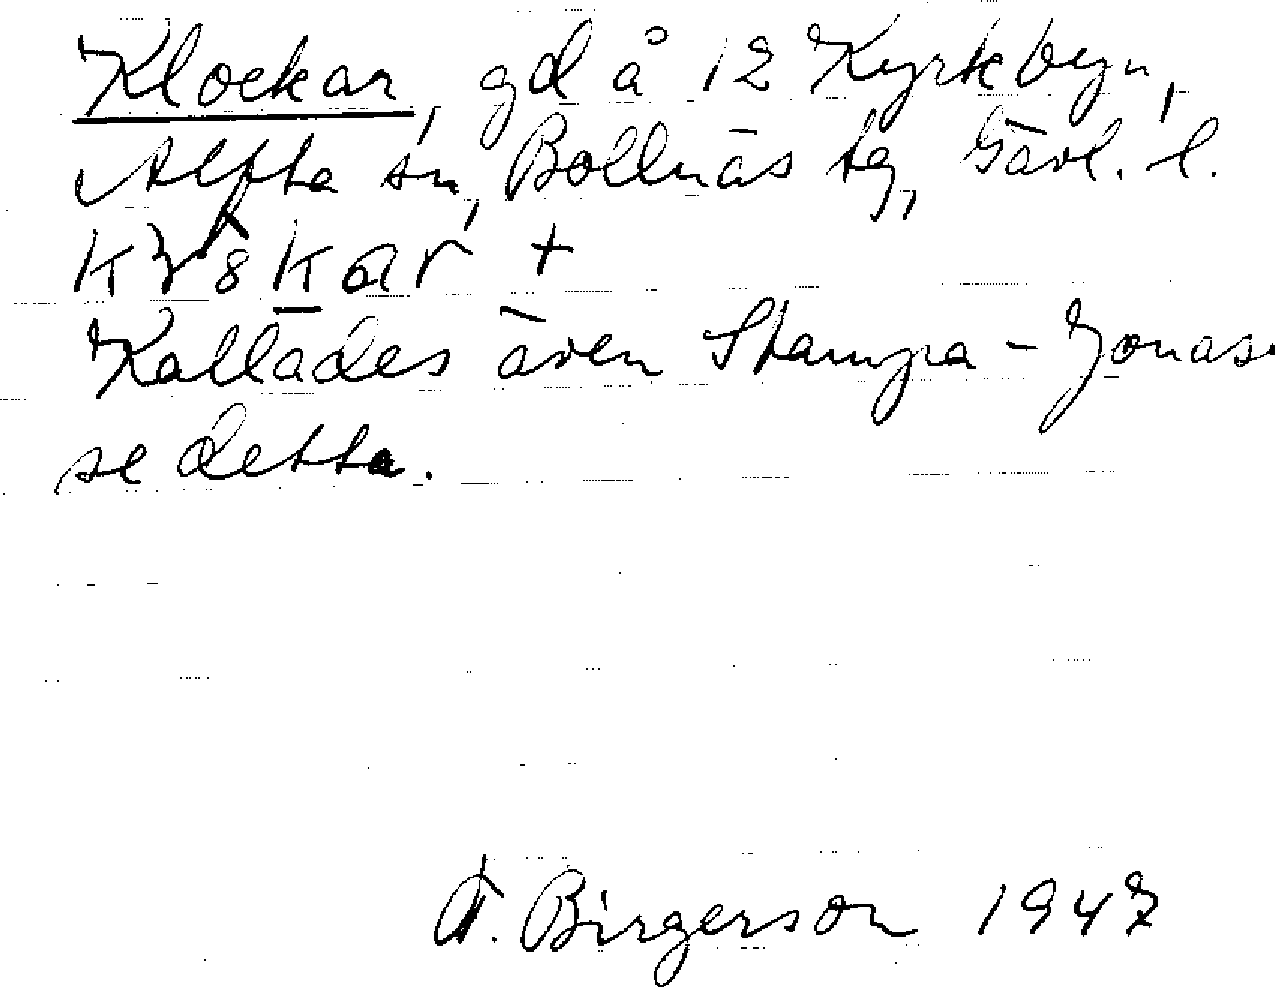 Klockar, gd å 12 Kyrkbyn,
Alfta sn, Bollnäs tg, Gävl. l.
Kallades även Stampa-Jonas.
se detta.
F. Birgerson 1947